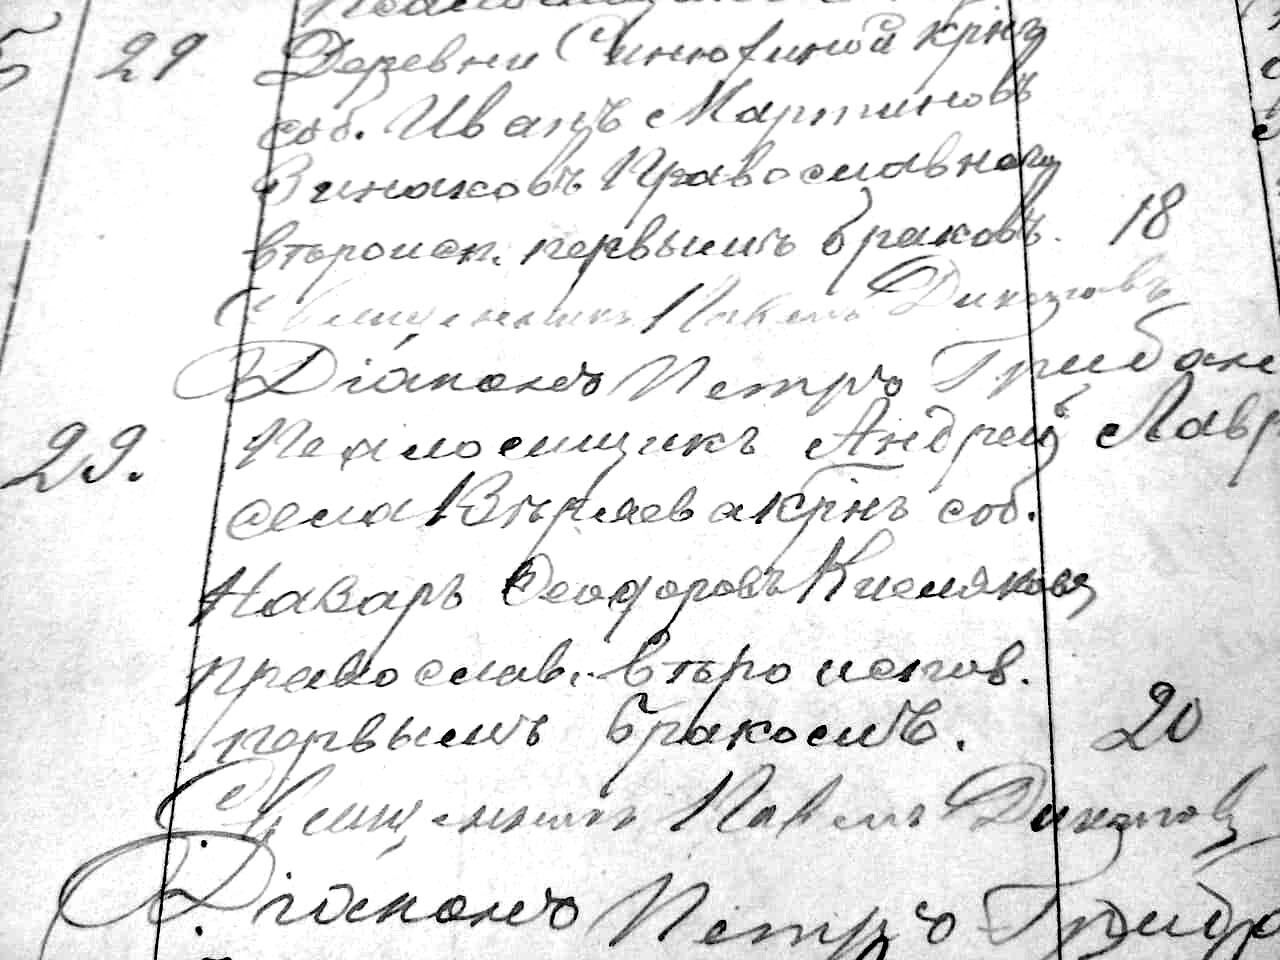 29 Деревни Синюхиной крнъ
соб. Иванъ Мартиновъ
Винаковъ Православнаго
вѣроисп. первымъ бракомъ. 18
Священникъ Павелъ
Діаконъ Петръ Грибан
29. Псаломщикъ Андрей Лавр
села Вѣряева крнъ соб.
Назаръ Ѳеодоровъ Кисляковъ
православ. вѣроиспов.
первымъ бракомъ. 20
Священникъ Павелъ
Діаконъ Петръ Гриба